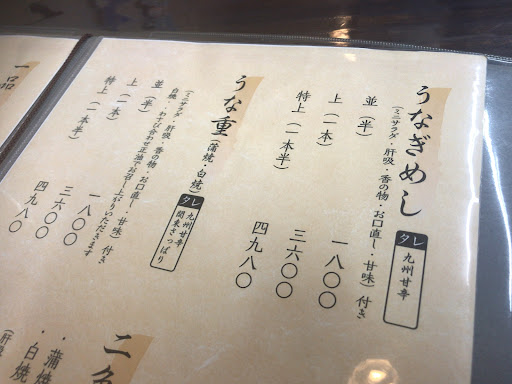 うなぎめし
タレ 九州甘辛
(ミニサラダ・肝吸・香の物・お口直し・甘味)付き
並(半) 一八〇〇
上(一本) 三六〇〇
特上(一本半) 四九八〇
うな重(蒲焼・白焼)
タレ 九州甘辛
関東さっぱり
(ミニサラダ・肝吸・香の物・お口直し・甘味)付き
白焼・わさび合わせ正油でお召し上がりいただきます
並(半) 一八〇〇
上(一本) 三六〇〇
特上(一本半) 四九八〇
一品
二色
・蒲焼
・白焼
(肝吸